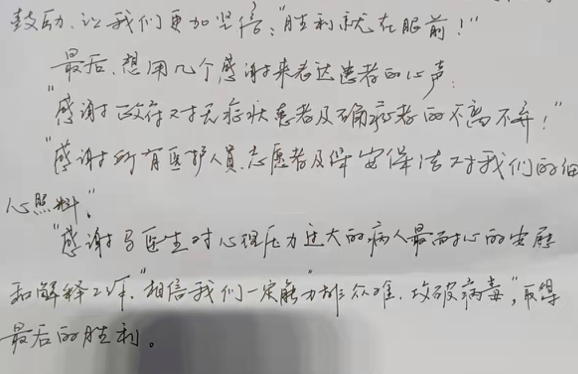 鼓励,让我们更加坚信:"胜利就在眼前!"
最后,想用几个感谢来表达患者的心声:
"感谢政府对无症状患者及确诊者的不离不弃!"
"感谢所有医护人员、志愿者及保安保洁对我们的细
心照料。"
"感谢马医生对心理压力过大的病人最耐心的安慰
和解释工作,"相信我们一定能"力排众难,攻破病毒",取得
最后的胜利。